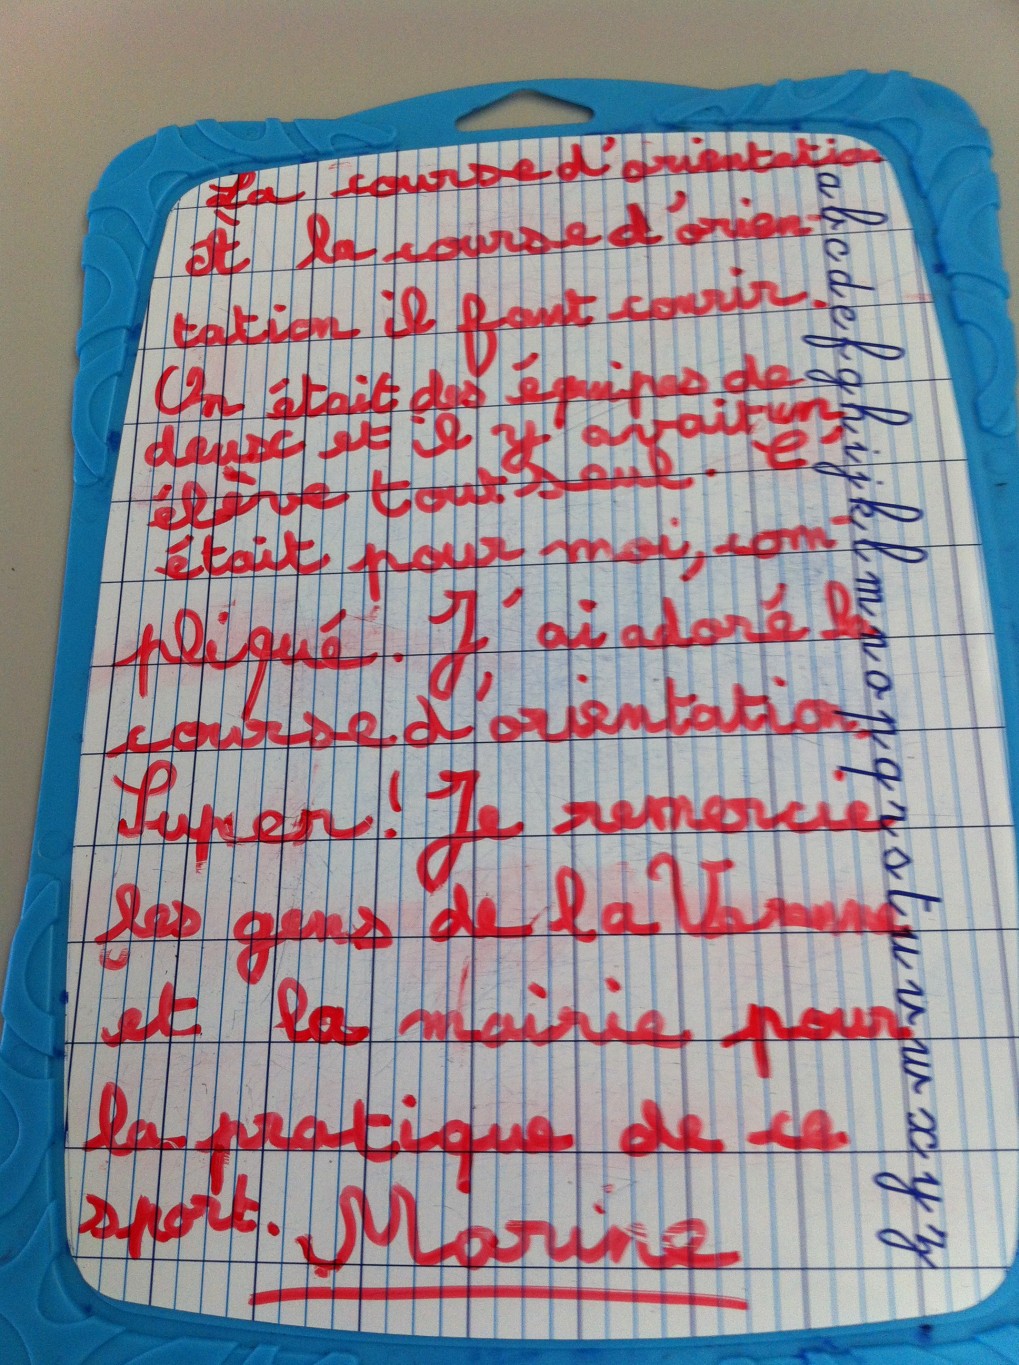 La course d'orientation
À la course d'orien-
tation il faut courir.
On était des équipes de
deux et il y avait un
élève tout seul. C'
était pour moi, com-
pliqué. J'ai adoré la
course d'orientation,
Super! Je remercie
les gens de la Vanne
et la mairie pour
la pratique de ce
sport. Marine
a b c d e f g h i j k l m n o p q r s t u v w x y z